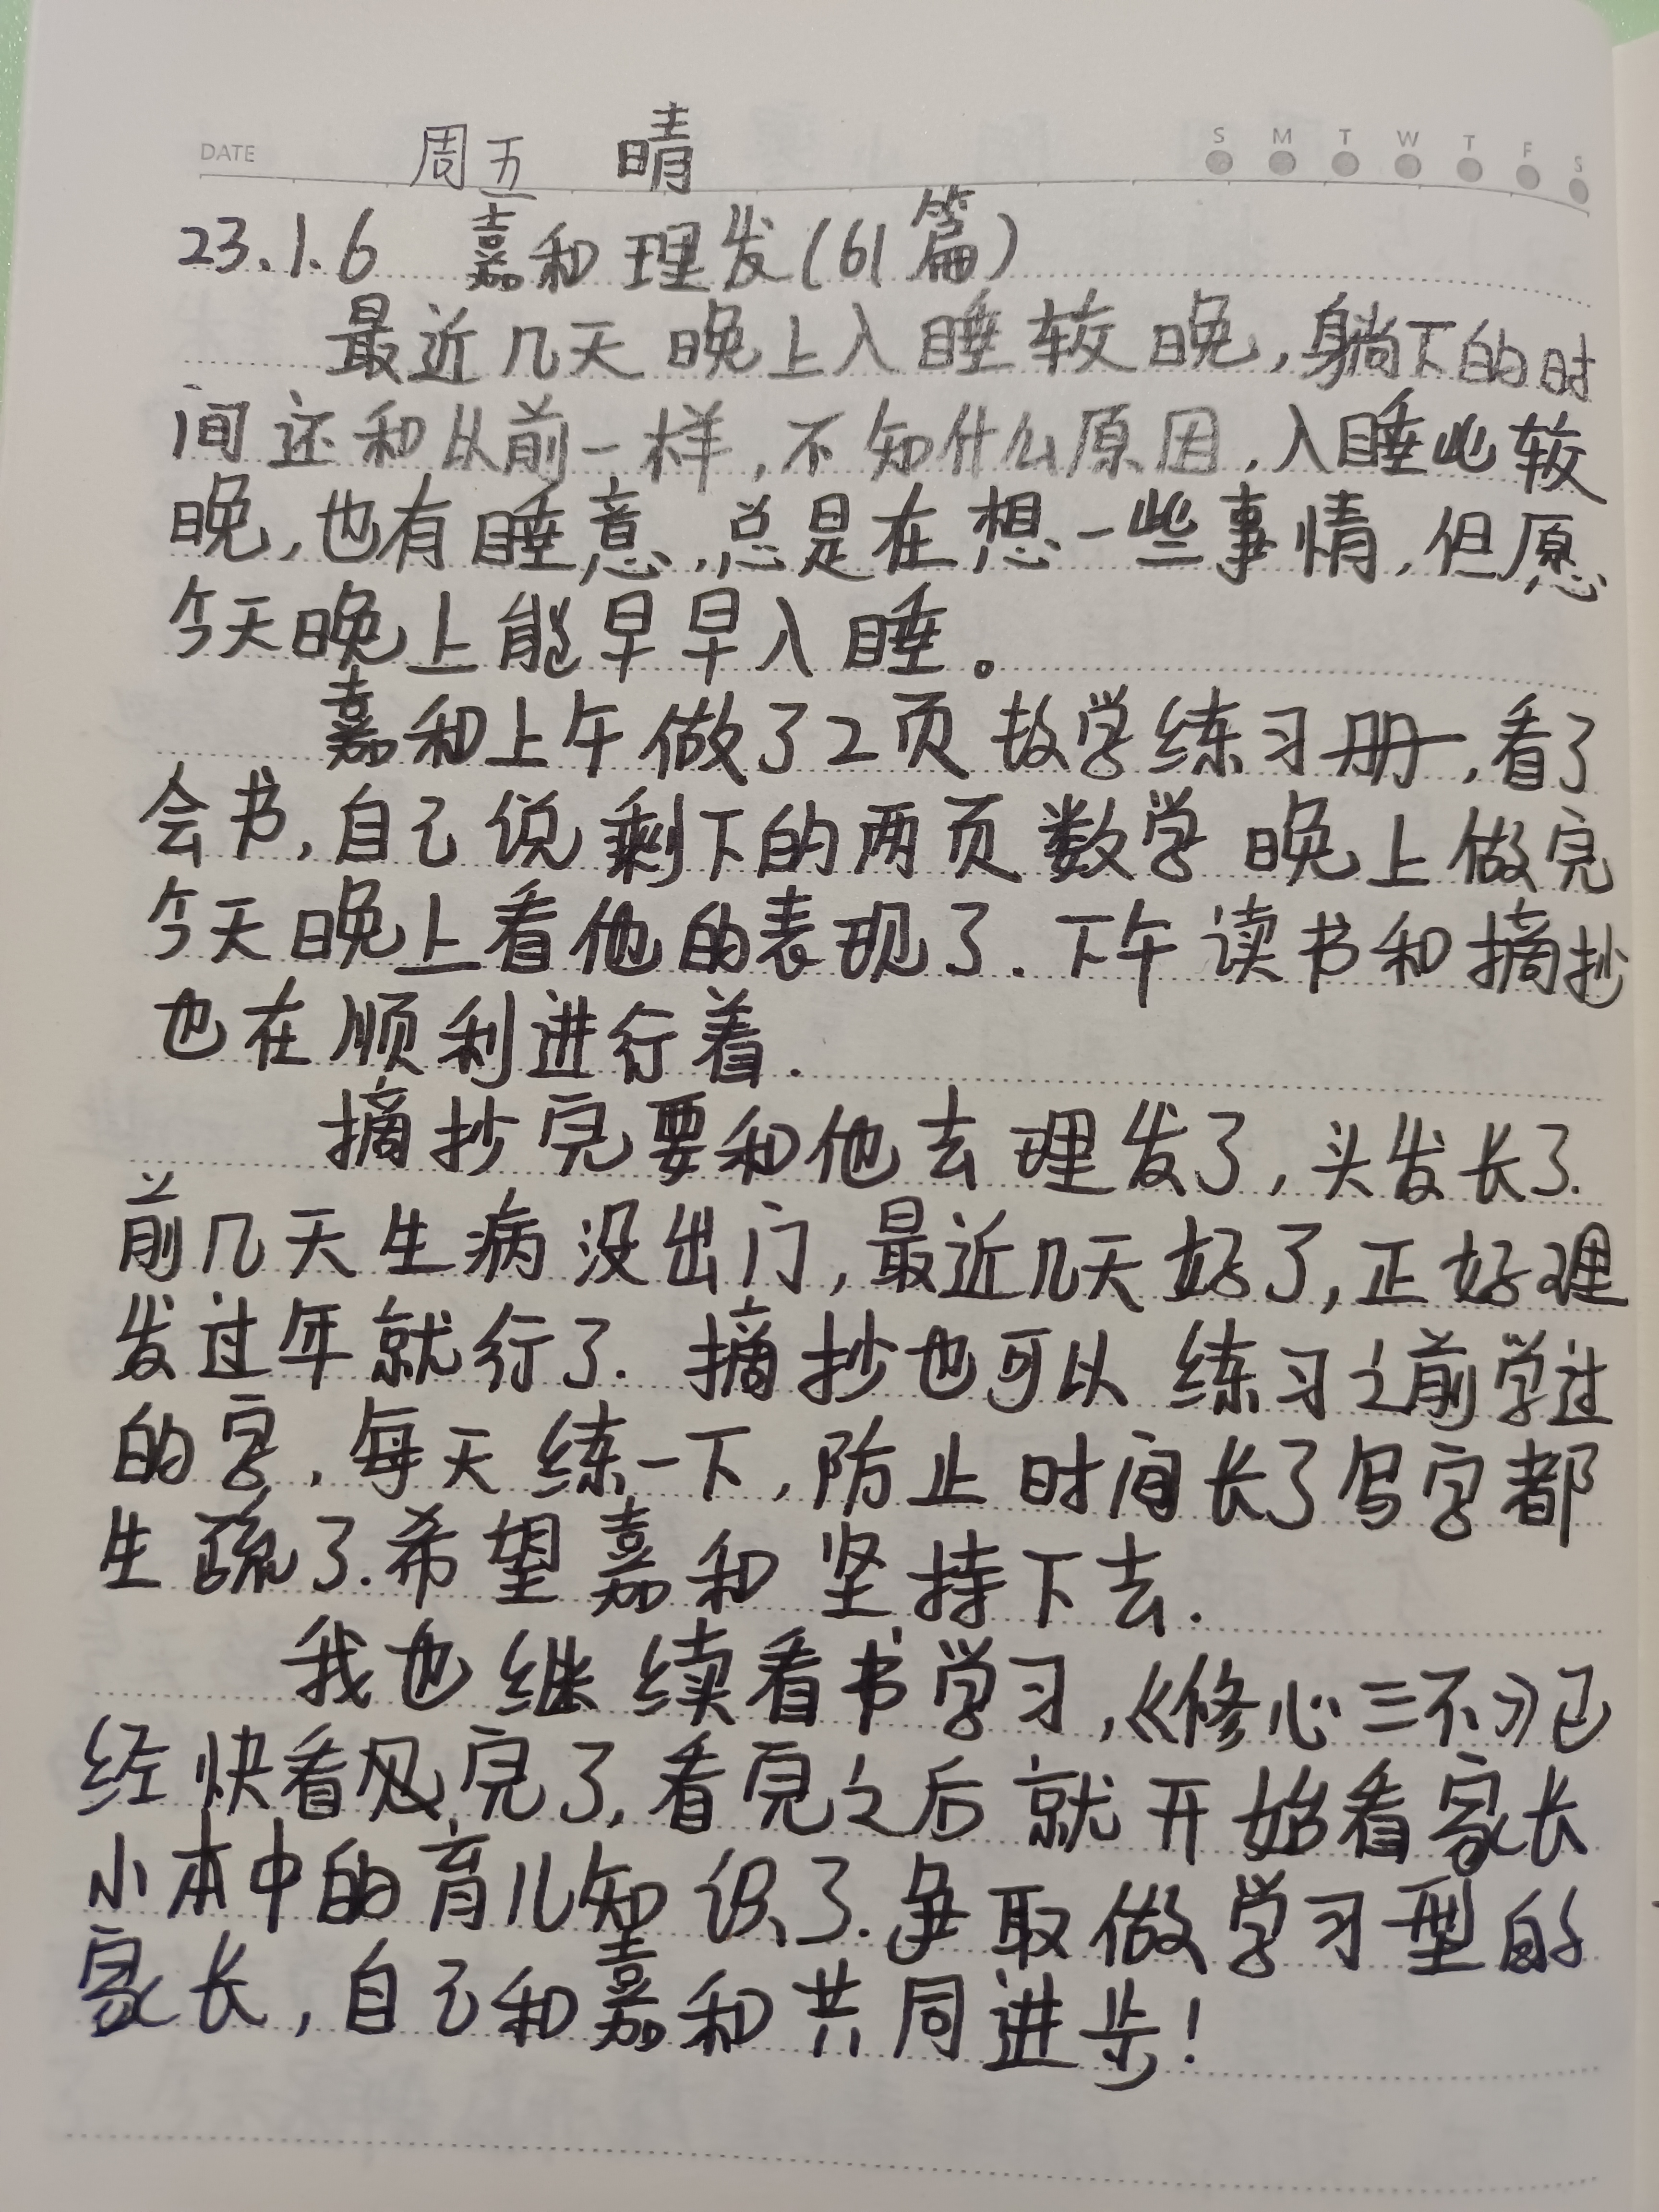 DATE 周五 晴 S M T W T F S
23.1.6 嘉和理发(61篇)
最近几天晚上入睡较晚,躺下的时
间还和以前一样,不知什么原因,入睡也较
晚,也有睡意,总是在想一些事情,但愿
今天晚上能早早入睡。
嘉和上午做了2页数学练习册,看了
会书,自己说剩下的两页数学晚上做完
今天晚上看他的表现了.下午读书和摘抄
也在顺利进行着.
摘抄完要和他去理发了,头发长了.
前几天生病没出门,最近几天好了,正好理
发过年就行了.摘抄也可以练习之前学过
的字,每天练一下,防止时间长了写字都
生疏了.希望嘉和坚持下去.
我也继续看书学习,《修心三不》已
经快看完了,看完之后就开始看家长
小本中的育儿知识了.争取做学习型的
家长,自己和嘉和共同进步!